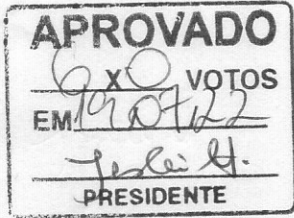 APROVADO
6 X 0 VOTOS
EM 19/07/22
PRESIDENTE